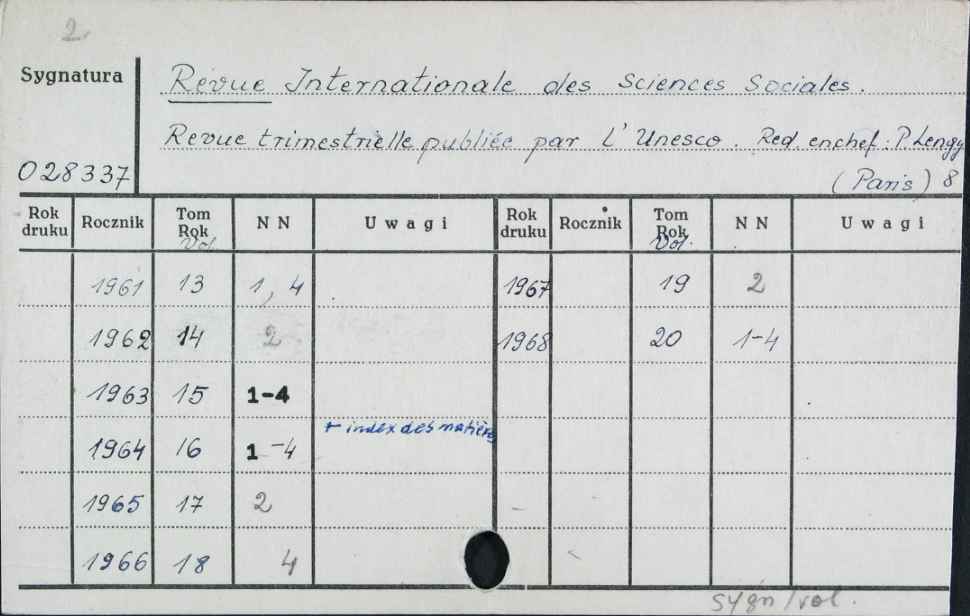 2.
Sygnatura
Revue Internationale des Sciences Sociales.
Revue trimestrielle publiée par L'Unesco. Red. enchef: P. Lengy
028337
(Paris) 8
Rok druku Rocznik Tom Rok Vol. NN Uwagi Rok druku Rocznik Tom Rok Vol. NN Uwagi
1961 13 1, 4 1967 19 2
1962 14 2 1968 20 1-4
1963 15 1-4
1964 16 1-4 + index des matières
1965 17 2
1966 18 4
sygn/vol.